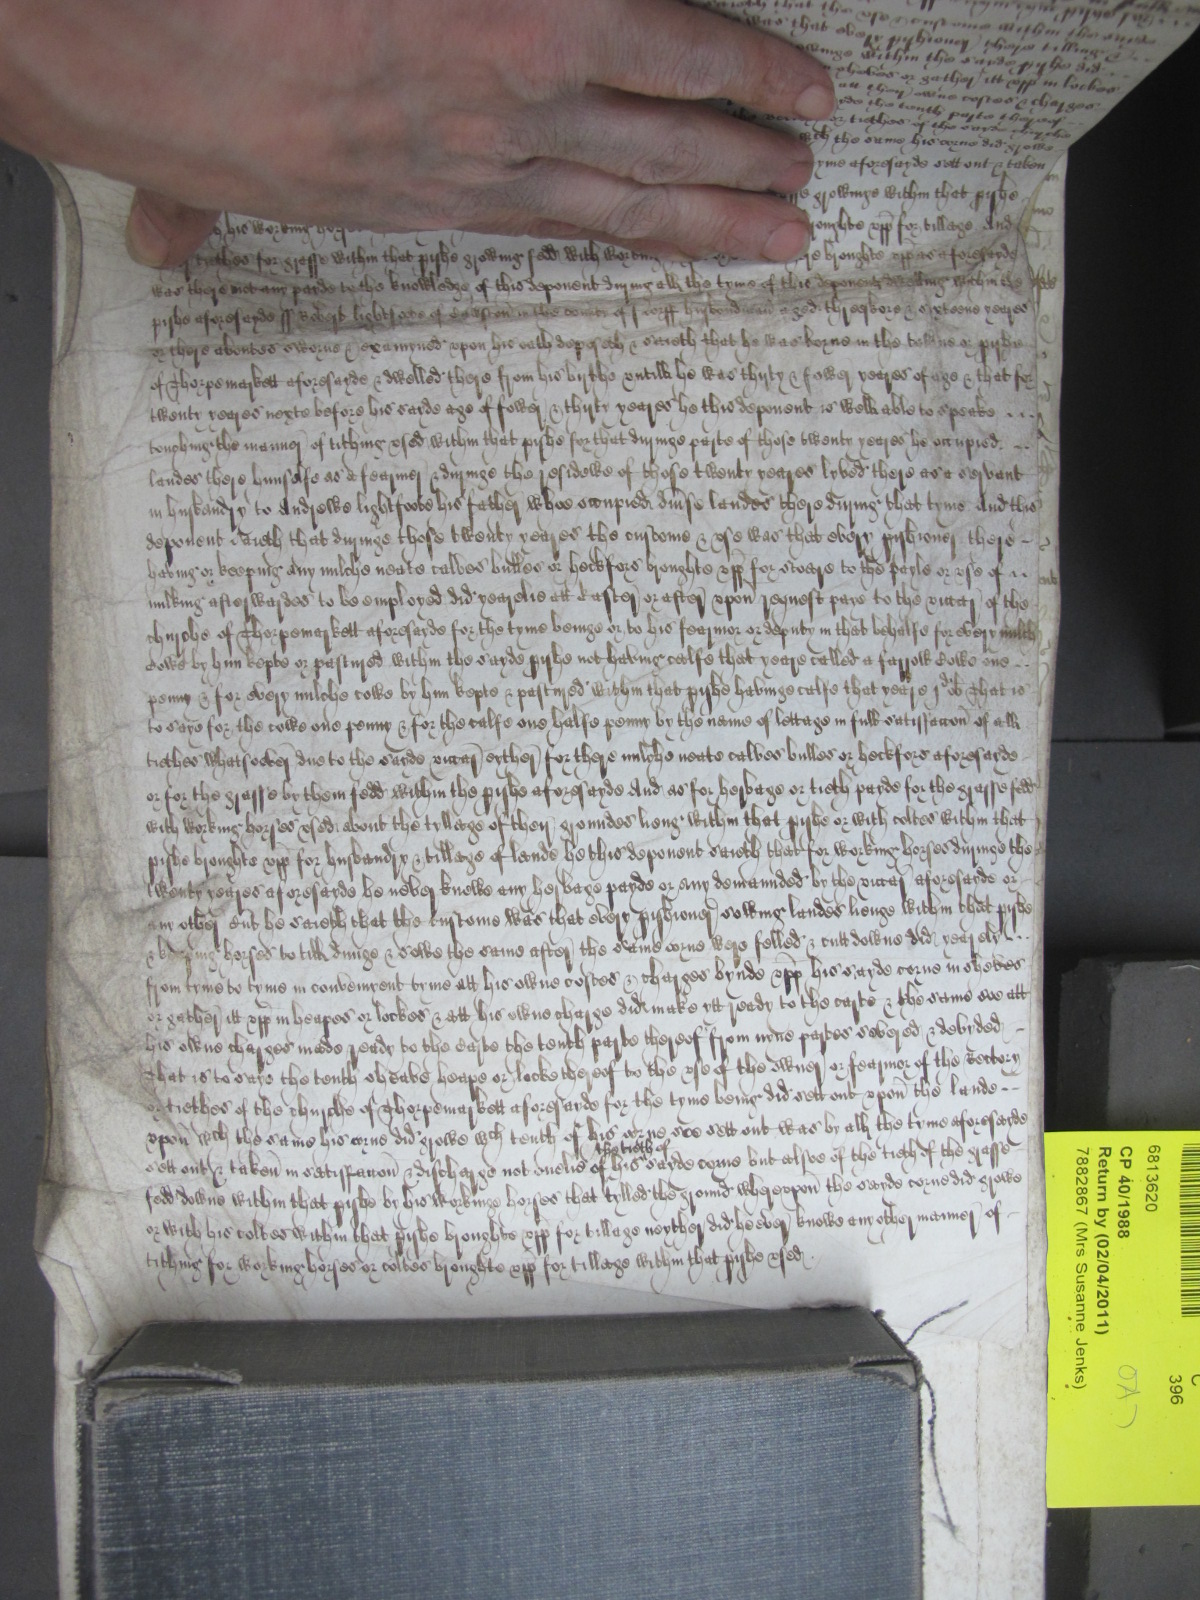 that the use & custome within the sayde
was that every pishioner there tilling
within the sayde pishe did
or gather itt upp in lockes
att their owne costes & charges
the tenth parte thereof
or tiethes of the sayde
the same his corne did growe
tyme aforesayde sett out & taken
growinge within that pishe
broughte upp for tillage And
his working horses
tiethes for grasse within that pishe growing fedd with working broughte upp as aforesayde
was there not any payde to the knowledge of this deponent during all the tyme of this deponentes dwelling within the
pishe aforesayde Robert Lightfoote of in the county of Norff husbandman aged threescore & sixteene yeares
or there aboutes sworne & examyned upon his oath deposeth & saieth that he was borne in the towne or pishe
of Thorpemarkett aforesayde & dwelled there from his birthe untill he was thirty & fower yeares of age & that for
twenty yeares nexte before his sayde age of fower & thirty yeares he this deponent is well able to speake
touching the manner of tithing used within that pishe for that duringe parte of those twenty yeares he occupied
landes there himselfe as a fearmer & duringe the residewe of those twenty yeares lyved there as a servant
in husbandry to Andrewe Lightfoote his father whoe occupied divse landes there during that tyme And this
deponent saieth that duringe those twenty yeares the custome & use was that every pishioner there
having or keeping any milche neate calves bulles or heckfors broughte upp for stoare to the payle or use of
milking afterwardes to be employed did yearelie att Easter or after upon request paye to the vicar of the
churche of Thorpemarkett aforesayde for the tyme beinge or to his fearmor or deputy in that behalfe for every milch
cowe by him kepte or pastured within the sayde pishe not having calfe that yeare called a farrow cowe one
penny & for every milche cowe by him kepte & pastured within that pishe havinge calfe that yeare jd ob That is
to saye for the cowe one penny & for the calfe one halfe penny by the name of lettage in full satisfaccon of all
tiethes whatsoever due to the sayde vicar eyther for there milche neate calves bulles or heckfors aforesayde
or for the grasse by them fedd within the pishe aforesayde And as for herbage or tieth payde for the grasse fedd
with working horses used about the tyllage of their groundes lieng within that pishe or with coltes within that
pishe broughte upp for husbandry & tillage of lande he this deponent saieth that for working horses duringe the
twenty yeares aforesayde he never knewe any herbage payde or any demaunded by the vicar aforesayde or
any other But he saieth that the custome was that every pishioner sowing landes lienge within that pishe
& keeping horses to till dunge & sowe the same after the same corne were felled & cutt downe did yearely
from tyme to tyme in convenyent tyme att his owne costes & charges bynde upp his sayde corne in sheves
or gather itt upp in heapes or lockes & att his owne charge did make itt ready to the carte & the same soe att
his owne charges made ready to the carte the tenth parte thereof from nyne partes severed & devyded
that is to saye the tenth sheafe heape or locke thereof to the use of the owner or fearmor of the Rectory
or tiethes of the churche of Thorpemarkett aforesayde for the tyme being did sett out upon the lande
upon wch the same his corne did growe wch tenth of his corne soe sett out was by all the tyme aforesayde
the tieth of
sett out & taken in satisfaccon & discharge not onelie of his sayde corne but alsoe of the tieth of the grasse
fedd downe within that pishe by his workinge horses that tylled the ground whereupon the sayde corne did growe
or with his coltes within that pishe broughte upp for tillage neyther did he ever knowe any other manner of
tithing for working horses or coltes broughte upp for tillage within that pishe used
6813620
CP 40/1988
Return by (02/04/2011)
7882867 (Mrs Susanne Jenks)
C
396